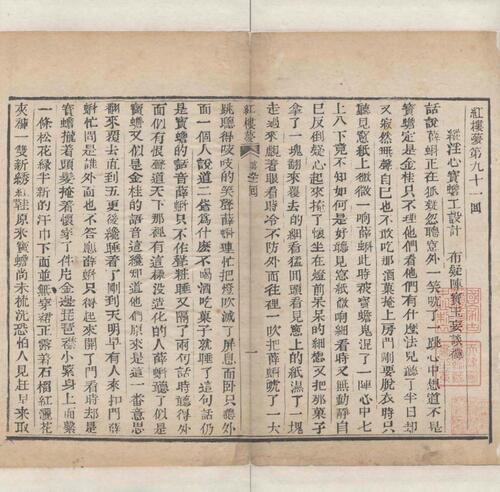 紅樓夢第九十一回
縱淫心寶蟾工設計 布疑陣寶玉妄談禪
話說薛蝌正在狐疑忽聽窻外一笑唬了一跳心中想道不是
寶蟾定是金桂只不理他們看他們有什麽法兒聽了半日却
又寂然無聲自已也不敢吃那酒菓掩上房門剛要脫衣時只
聽見窻紙上微微一响薛蝌此時被寶蟾鬼混了一陣心中七
上八下竟不知如何是好聽見窻紙微响細看時又無動靜自
已反倒疑心起來掩了懷坐在燈前呆呆的細想又把那菓子
拿了一塊翻來覆去的細看猛回頭看見窻上的紙濕了一塊
走過來覷着眼看時冷不防外面往裡一吹把薛蝌唬了一大
紅樓夢 第九十一回 一
跳聽得吱吱的笑聲薛蝌連忙把燈吹滅了屏息而卧只聽外
面一個人說道二爺爲什麽不喝酒吃菓子就睡了這句話仍
是寶蟾的語音薛蝌只不作聲粧睡又隔了兩句話時聽得外
面似有恨聲道天下那裡有這樣沒造化的人薛蝌聽了似是
寶蟾又似是金桂的語音這纔知道他們原來是這一番意思
翻來覆去直到五更後纔睡着了剛到天明早有人來扣門薛
蝌忙問是誰外面也不答應薛蝌只得起來開了門看時却是
寶蟾攏着頭髮掩着懷穿了件片金邊琵琶襟小緊身上面繫
一條松花綠半新的汗巾下面並無穿裙正露着石榴紅洒花
夾褲一雙新綉紅鞋原來寶蟾尚未梳洗恐怕人見赶早來取